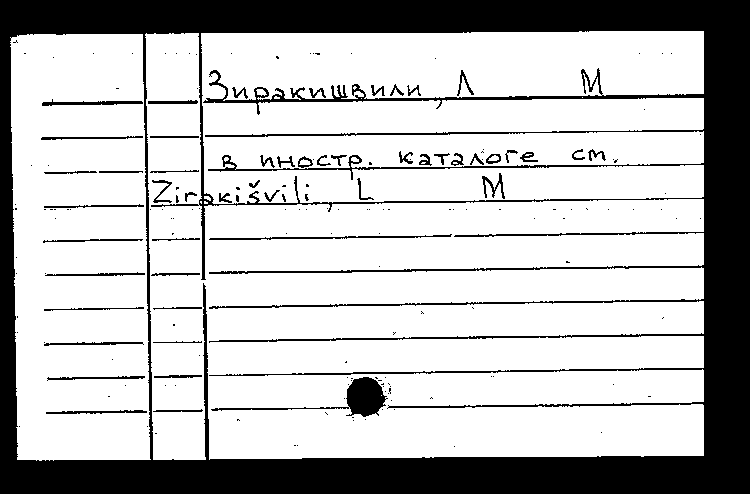 Зиракишвили, Л М
в иностр. каталоге см.
Zirakišvili, L M